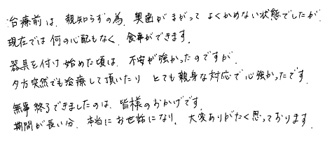 治療前は、親知らずの為、奥歯がまがって よくかめない状態でしたが
現在では 何の心配もなく、食事ができます。
器具を付け始めた頃は、不安が強かったのですが、
夕方突然でも治療して頂いたり とても親身な対応で心強かったです。
無事終了できましたのは、皆様のおかげです。
期間が長い分、本当にお世話になり、大変ありがたく思っております。